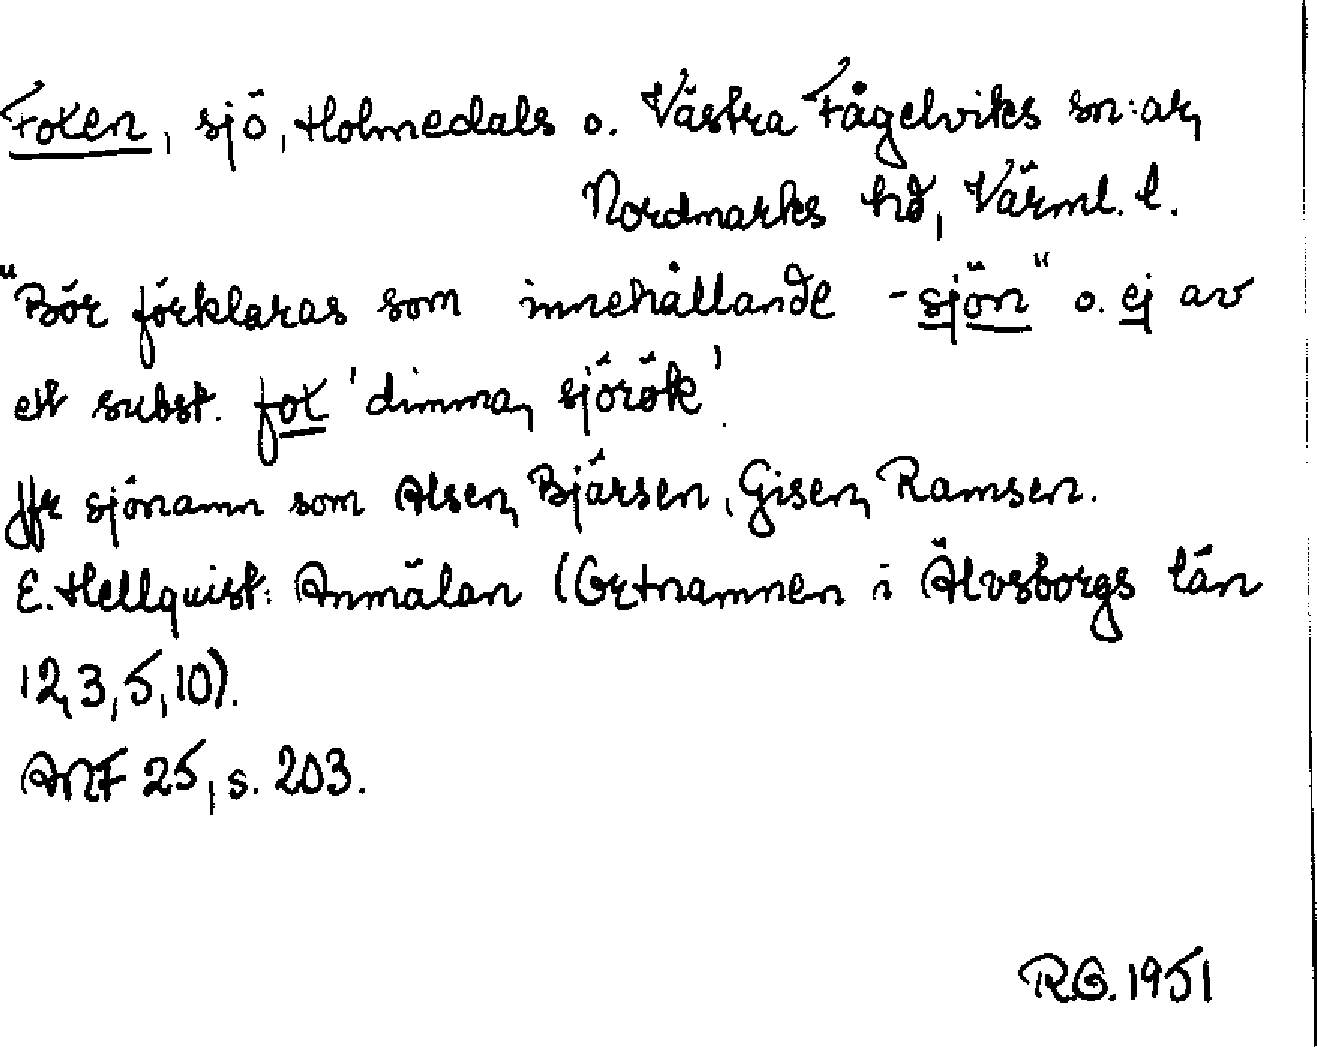 Foxen, sjö, Holmedals o. Västra Fågelviks sn:ar,
Nordmarks hd, Värml. l.
"Bör förklaras som innehållande -sjön" o. ej av
ett subst. fox 'dimma, sjörök'.
Jfr sjönamn som Alsen, Bjärsen, Gisen, Ramsen.
E. Hellquist: Anmälan (Ortnamnen i Älvsborgs län
12, 3, 5, 10).
ANF 25, s. 203.
R.G. 1951